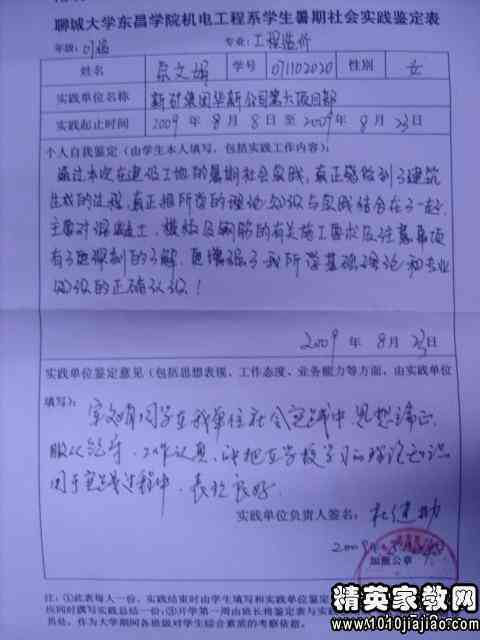 聊城大学东昌学院机电工程系学生暑期社会实践鉴定表
年级: 专业: 工程造价
姓名 文娟 学号 071102020 性别 女
实践单位名称 新矿集团华新公司第六项目部
实践起止时间 2009 年 8 月 8 日 至 2009 年 8 月 23 日
个人自我鉴定(由学生本人填写,包括实践工作内容):
通过本次在建设工地的暑期社会实践,真正感触到了建筑
生成的过程,真正把所学的理论知识与实践结合在了一起,
主要对混凝土、模板及钢筋的有关施工要求及注意事项
有了更深刻的了解,更增强了我所学基础理论和专业
知识的正确认识!
2009 年 8 月 23 日
实践单位鉴定意见(包括思想表现、工作态度、业务能力等方面,由实践单位
填写):
文娟同学在我单位社会实践中,思想端正,
服从领导,工作认真,能把在学校学习的理论知识
用于实践过程中,表现良好。
实践单位负责人签名:
2009 年
加盖公章
注:①此表每人一份,实践结束时由学生填写和实践单位鉴定
应同时撰写实践总结一份;③开学第一周由班长将鉴定表与实践
员处,作为大学期间各班级对学生综合素质的考察依据。
精英家教网
www.1010jiajiao.com